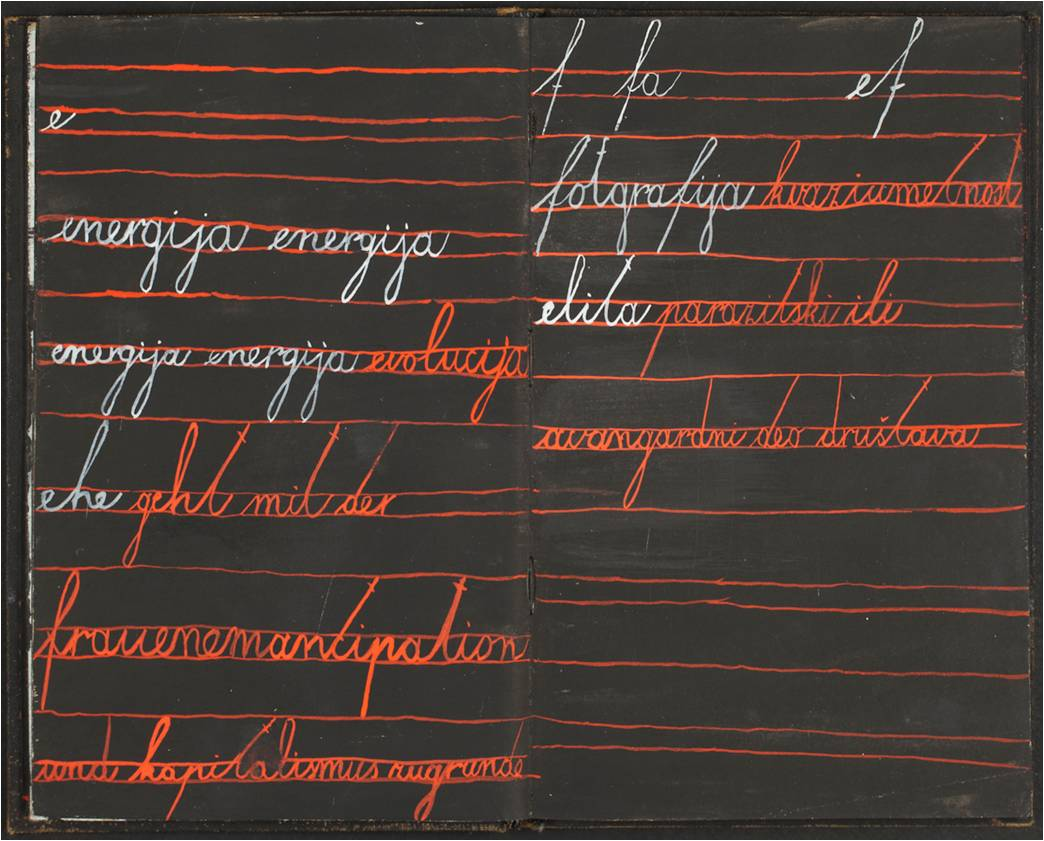 e
energija energija
energija energija evolucija
ehe geht mit der
frauenemantipation
und kapitalismus zugrunde
f fa ef
fotgrafija kvaziumetnost
elita parazitski ili
avangardni deo društava